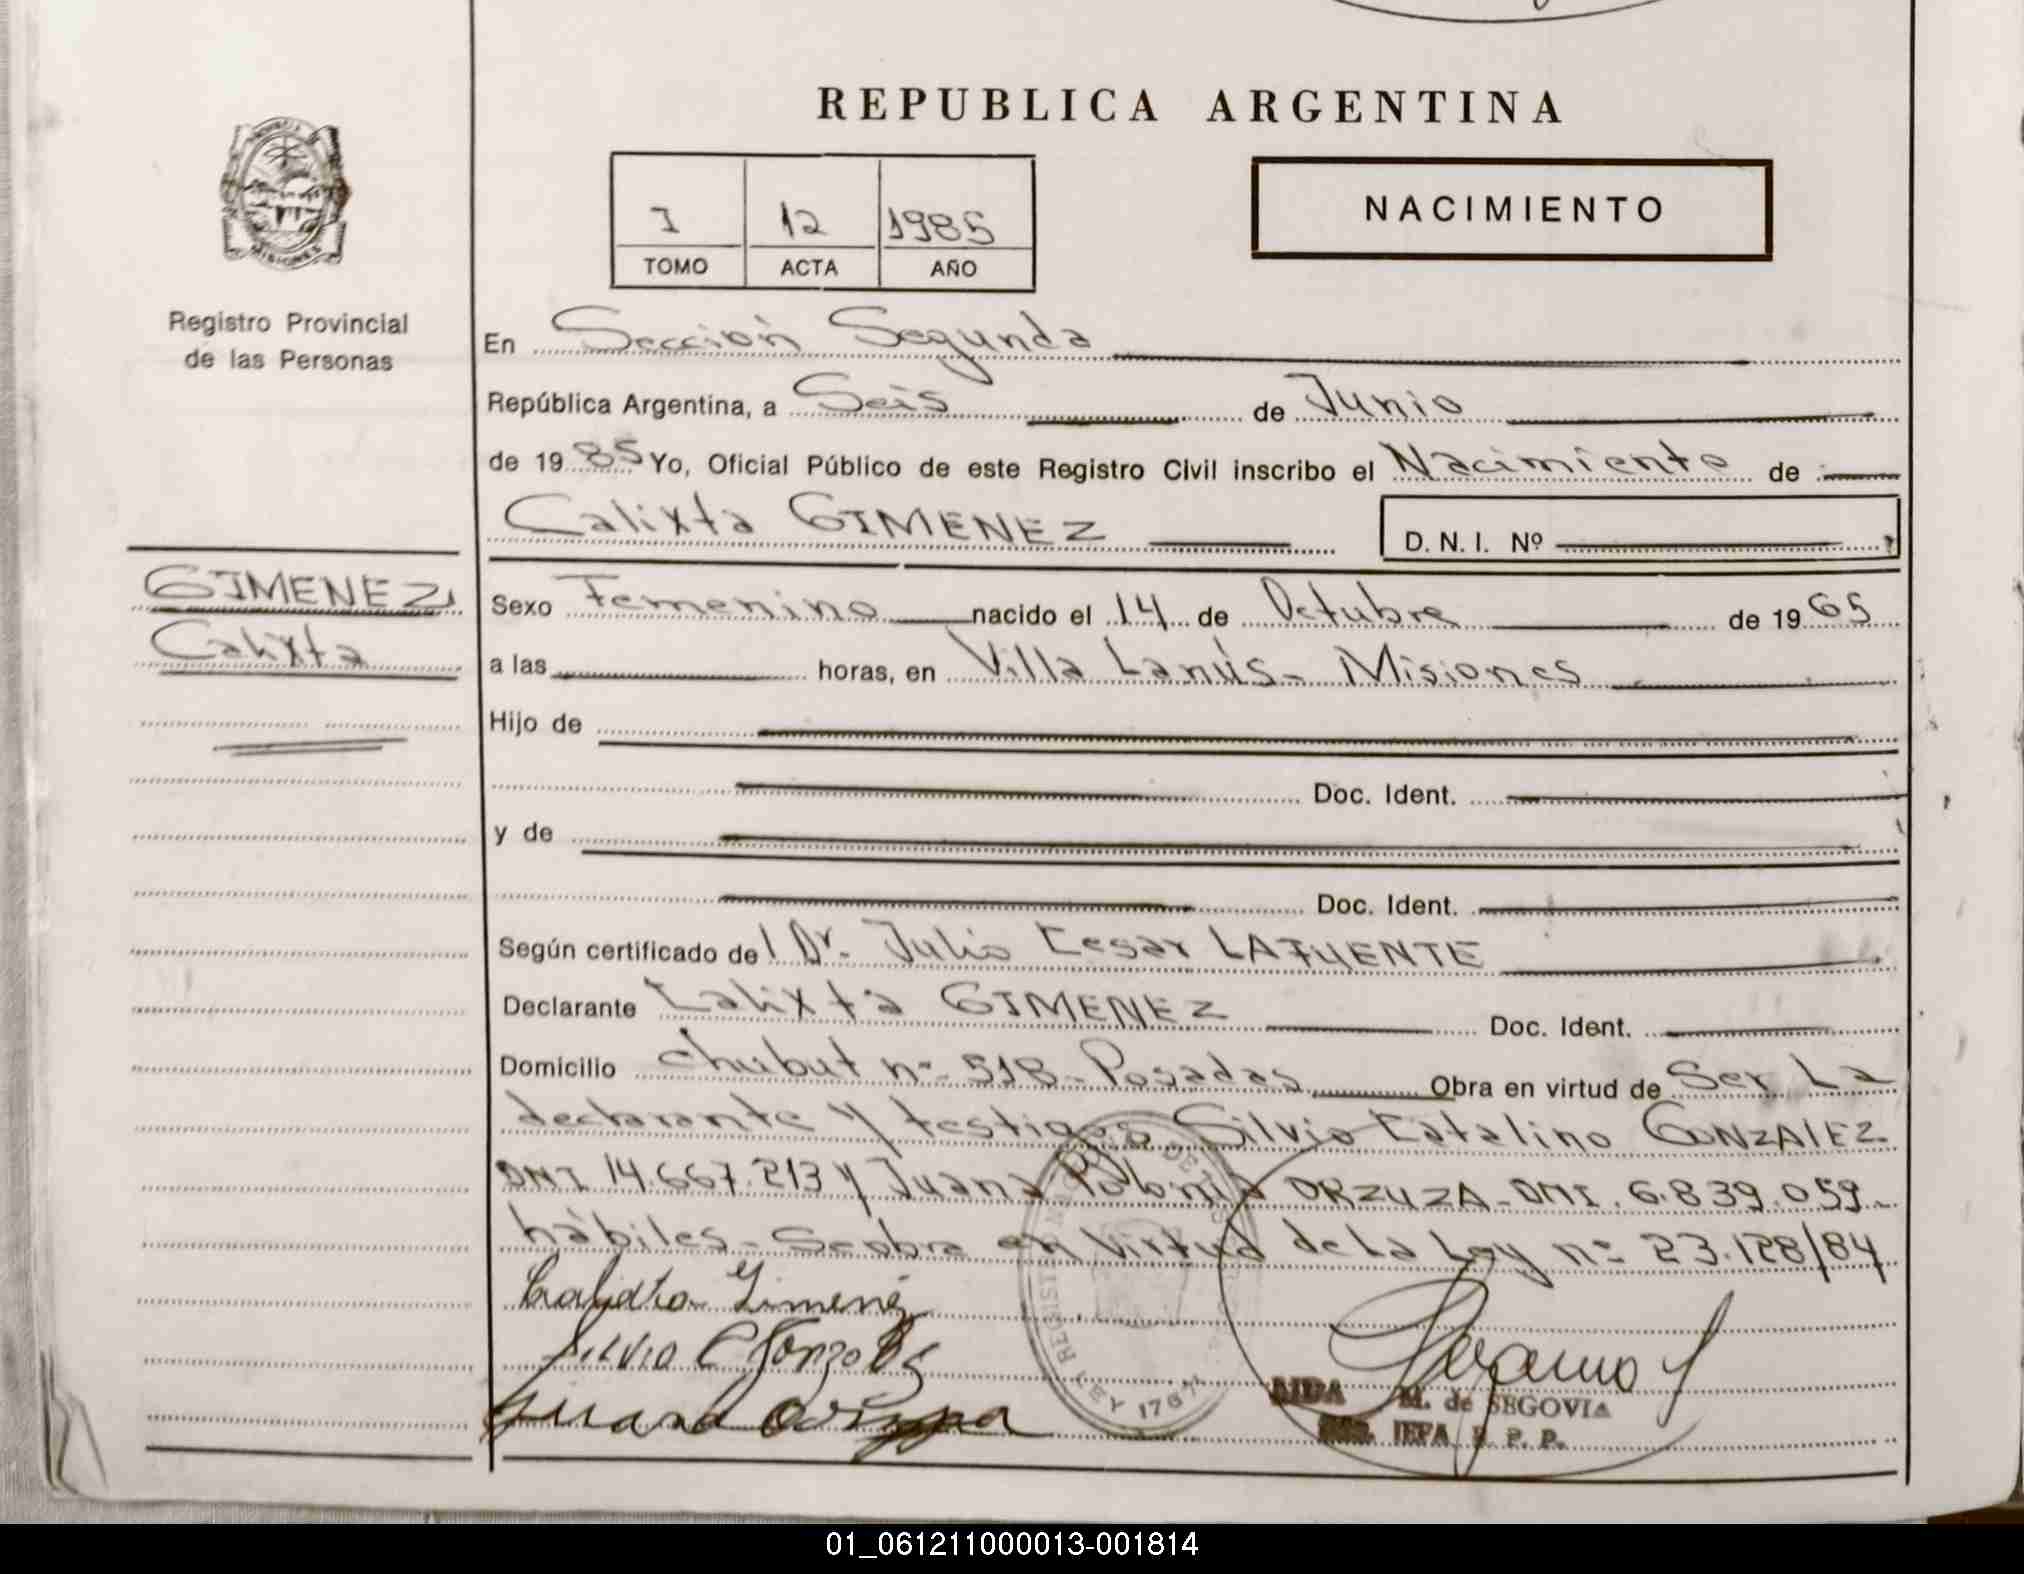 REPUBLICA ARGENTINA
MISIONES
Registro Provincial
de las Personas
I 12 1985
TOMO ACTA AÑO
NACIMIENTO
En Sección Segunda
República Argentina, a Seis de Junio
de 1985 Yo, Oficial Público de este Registro Civil inscribo el Nacimiento de
Calixta GIMENEZ D. N. I. Nº
GIMENEZ
Calixta
Sexo Femenino nacido el 14 de Octubre de 1965
a las horas, en Villa Lanús - Misiones
Hijo de
Doc. Ident.
y de
Doc. Ident.
Según certificado del Dr. Julio Cesar LAFUENTE
Declarante Calixta GIMENEZ Doc. Ident.
Domicilio chubut nº 518 - Posadas Obra en virtud de Ser La
declarante y testigos Silvio Catalino GONZALEZ
DNI 14.667.213 y Juana Polonia ORZUZA - DNI. 6.839.059 -
hábiles - Se obra en Virtud de La Ley nº 23.128/84
Calixta Gimenez
Silvio C Gonzalez
Juana
AIDA M. de SEGOVIA
JEFA R. P. P.
LEY 1767
01_061211000013-001814